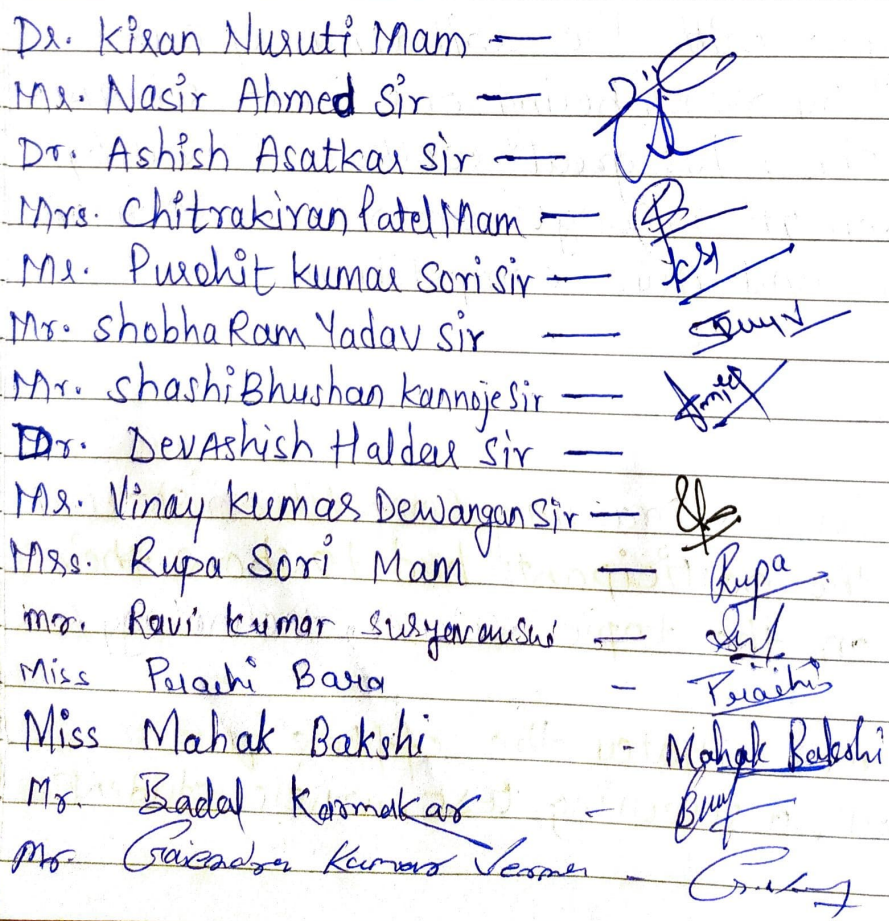 Dr. Kiran Nuruti Mam —
Mr. Nasir Ahmed Sir —
Dr. Ashish Asatkar Sir —
Mrs. Chitrakiran Patel Mam —
Mr. Purohit Kumar Sori Sir —
Mr. Shobha Ram Yadav Sir —
Mr. Shashi Bhushan Kannoje Sir —
Dr. DevAshish Haldar Sir —
Mr. Vinay Kumar Dewangan Sir —
Mrs. Rupa Sori Mam — Rupa
Mr. Ravi Kumar Suryavanshi —
Miss Prachi Bara - Prachi
Miss Mahak Bakshi - Mahak Bakshi
Mr. Badal Karmakar -
Mr. Gajendra Kumar Verma -